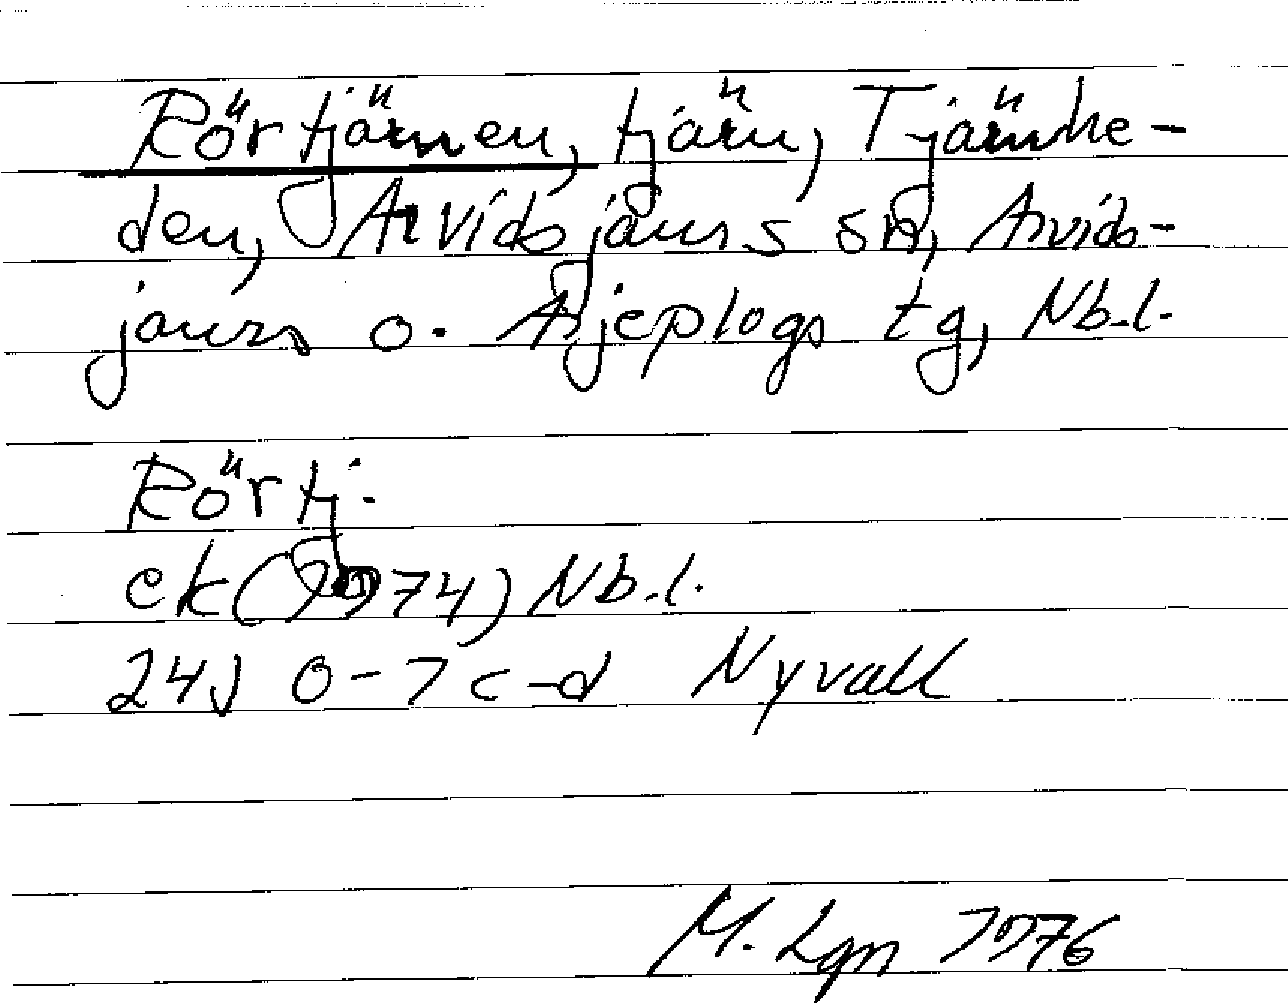 Rörtjärnen, tjärn, Tjärnhe-
den, Arvidsjaurs sn, Arvids-
jaurs o. Arjeplogs tg, Nb.l.
Rörtj.
ek (1974) Nb.l.
24J 0-1 c-d Nyvall
M. Lgn 1976